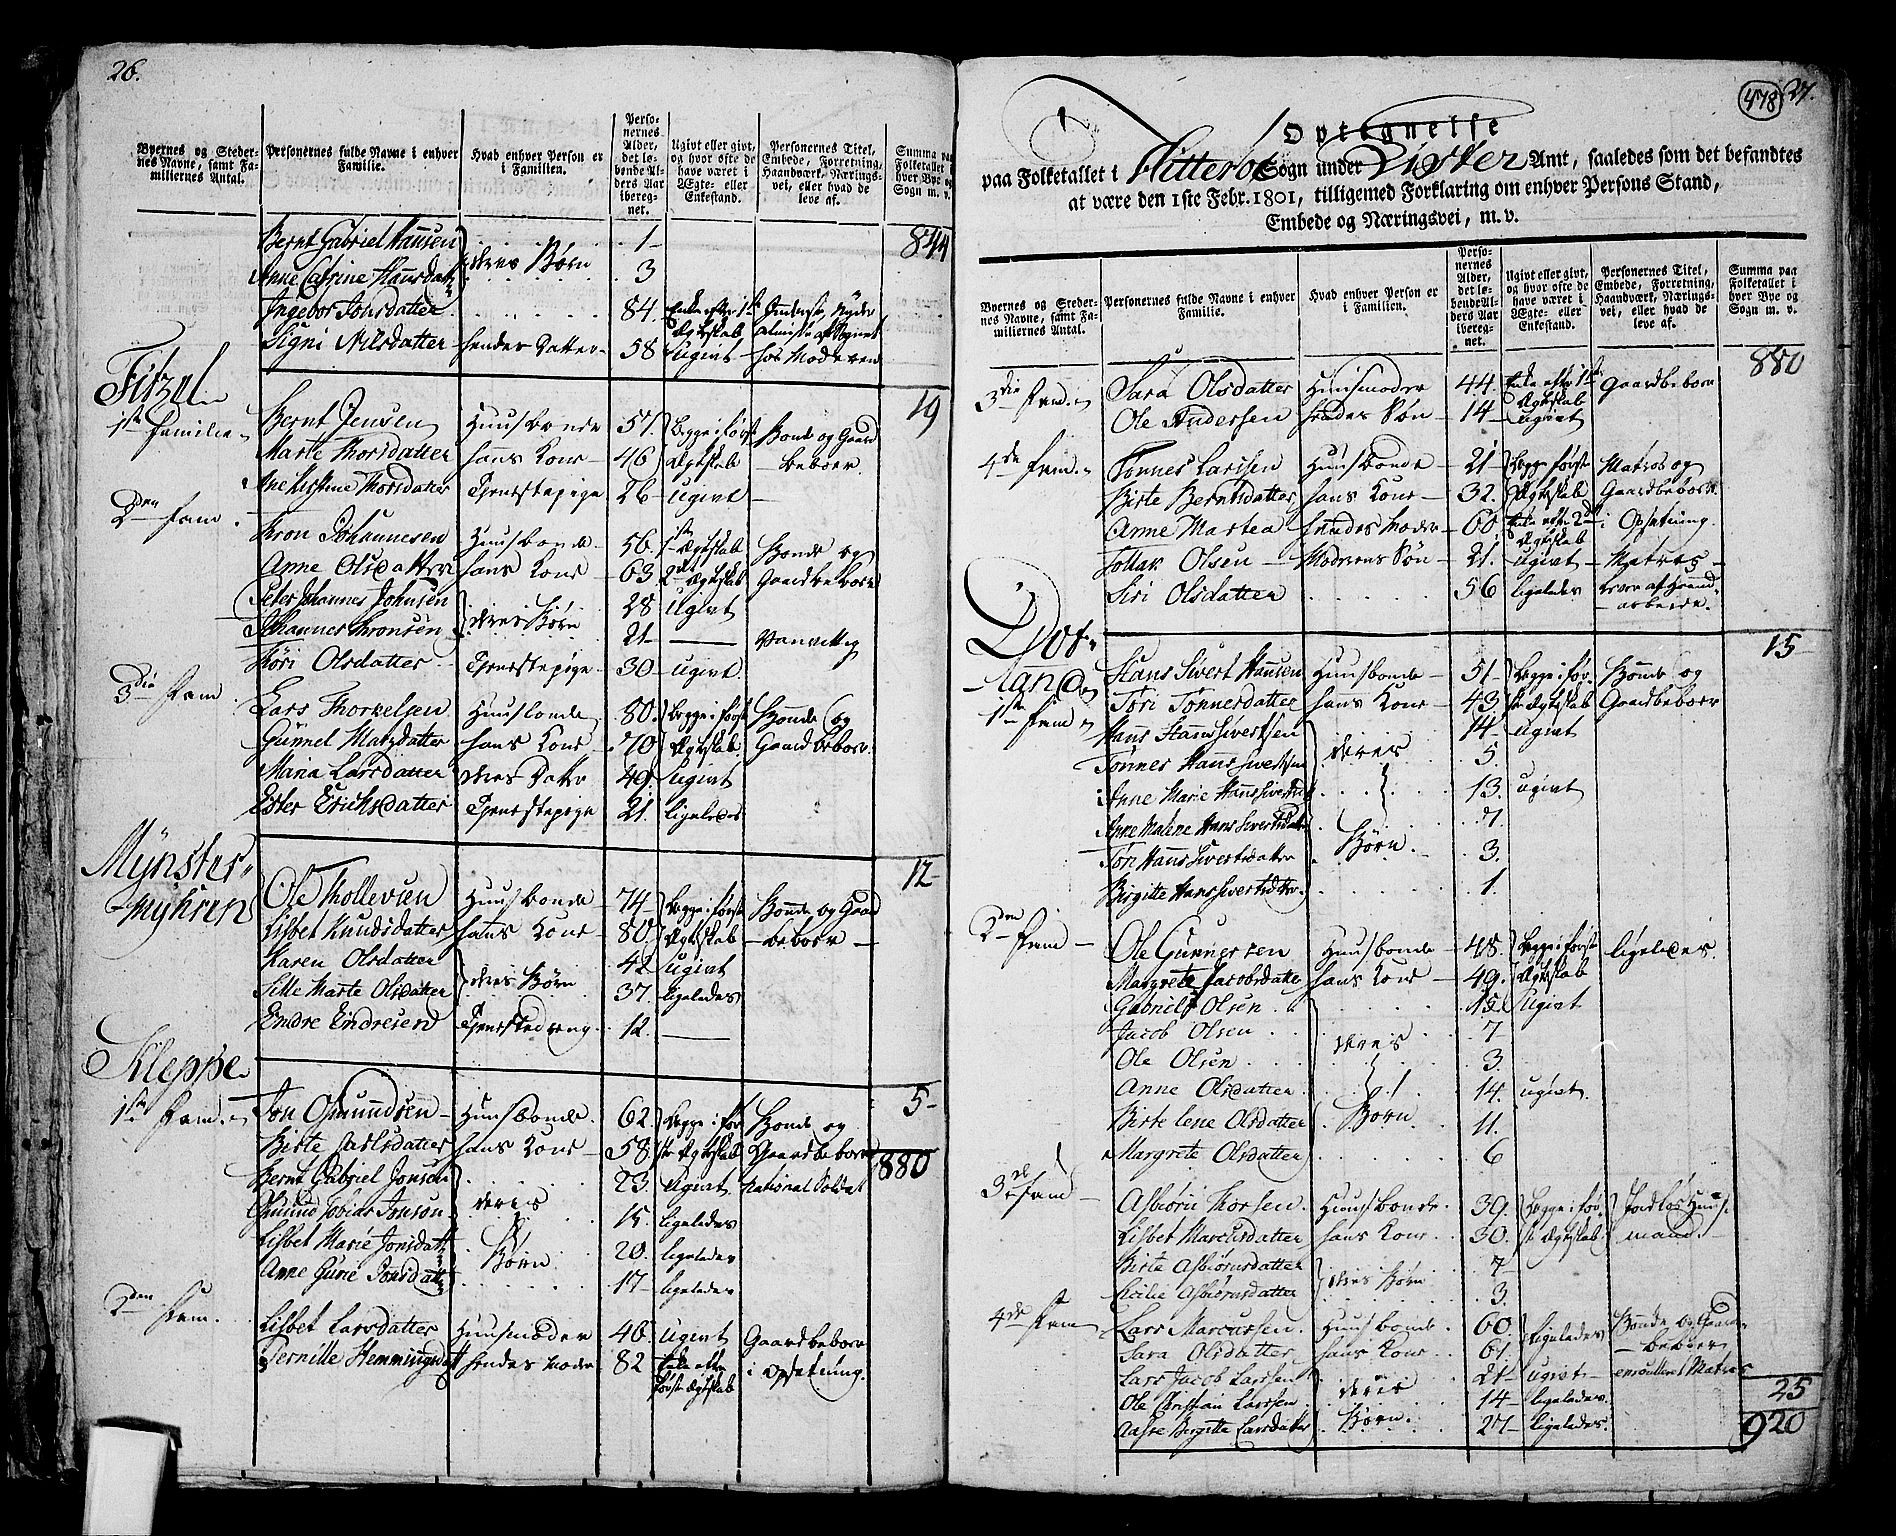 26.
Byernes og Stedernes Navne, samt Familiernes Antal.
Personernes fulde Navne i enhver Familie.
Hvad enhver Person er i Familien.
Personernes Alder, det lebende Alders Aar iberegnet.
Ugivt eller givt, og hvor ofte de have været i Ægte- eller Enkestand.
Personernes Titel, Embede, Forretning, Haandværk, Næringsvei, eller hvad de leve af.
Summa paa Folketallet i hver Bye og Sogn m. v.
Bernt Gabriel Hansen deres Børn 1 844
Anne Catrine Hansdatter 3
Ingebor Jonsdatter 84. Enke efter 1ste Ægteskab Inderste, Nyder almisse af Sognet
Signi Nilsdatter hendes Datter 58 Ugivt hos Moderen
Fitzel 19
1ste Familie Bernt Jensen Huusbonde 57. Begge i første Bonde og Gaard
Marte Thorsdatter hans Kone 46 Ægteskab beboer.
Ane Kirstine Thorsdatter Tjenestepige 26 Ugivt
2den Fam. Thron Johannesen Huusbonde 56. 1ste Ægteskab Bonde og
Anne Olsdatter hans Kone 63. 2det Ægteskab Gaardbeboer
Peter Johannes Johnsen deres Børn 28 Ugivt
Johannes Thronsen 21 Vanvittig
Siri Olsdatter Tjenestepige 30 Ugivt.
3die Fam. Lars Thorkelsen Huusbonde 80. Begge i første Bonde og
Gunnel Matzdatter hans Kone 70 Ægteskab Gaardbeboer
Maria Larsdatter deres Datter 49. Ugivt
Ester Ericksdatter Tjenestepige 21. ligeledes
Mÿnster mÿhren 12
Ole Thollevsen Huusbonde 74 Begge i første Bonde og Gaard
Lisbet Knudsdatter hans Kone 80 Ægteskab beboer
Karen Olsdatter deres Børn 42 Ugivt
Sille Marte Olsdatter 37. ligeledes
Endre Endresen Tjenestedreng. 12.
Kleppe 5
1ste Fam. Jon Osmundsen Huusbonde 62. Begge i før Bonde og
Birte Carlsdatter hans Kone 58 ste Ægteskab Gaardbeboer 880
Bernt Gabriel Jonsen deres Børn 23. Ugivt National Soldat
Osmund Tobias Jonson 15. ligeledes
Lisbet Marie Jonsdatter 20. ligeledes
Anne Gurie Jonsdatter 17 ligeledes
2den Fam. Lisbet Larsdatter Huusmoder 46. Ugivt Gaardbeboer
Pernille Hemmingsdatter hendes Moder 82 Enke efter første Ægteskab i Opsetning.
478 27.
Optegnelse
paa Folketallet i Hitteroe Sogn under Lister Amt, saaledes som det befandtes
at være den 1ste Febr. 1801, tilligemed Forklaring om enhver Persons Stand,
Embede og Næringsvei, m. v.
Byernes og Stedernes Navne, samt Familiernes Antal.
Personernes fulde Navne i enhver Familie.
Hvad enhver Person er i Familien.
Personernes Alder, det lebende Alders Aar iberegnet.
Ugivt eller givt, og hvor ofte de have været i Ægte- eller Enkestand.
Personernes Titel, Embede, Forretning, Haandværk, Næringsvei, eller hvad de leve af.
Summa paa Folketallet i hver Bye og Sogn m. v.
880
3die Fam. Sara Olsdatter Huusmoder 44. Enke efter 1ste Ægteskab Gaardbeboer
Ole Andersen hendes Søn 14 Ugivt
4de Fam. Tønnes Larssen Huusbonde 21 Begge første Matros og
Birte Berntsdatter hans Kone 32. Ægteskab Gaardbeboer
Anne Martea hendes Moder 60 Enke efter 2det Ægteskab i Opsetning.
Tollak Olsen Moderens Søn 21. Ugivt Matros
Siri Olsdatter 56 ligeledes lever af Haand arbeide.
15
1ste Fam. Hans Sivert Hansen Huusbonde 51 Begge i før Bonde og
Tøri Tønnesdatter hans Kone 43 ste Ægteskab Gaardbeboer
Hans Hans Sivertsen deres 14 Ugivt
Tønnes Hans Sivertsen 5.
Anne Marie Hans Sivertsd 13. Ugivt
Anne Malene Hans Sivertsdatter 7.
Tøre Hans Sivertsdatter Børn 3.
Birgitte Hans Sivertsdatter 1.
2den Fam. Ole Gunnersen Huusbonde 48. Begge i første ligeledes.
Margrete Jacobsdatter hans Kone 49. Ægteskab
Gabriel Olsen 15. Ugivt
Jacob Olsen deres 7
Ole Olsen 3.
Anne Olsdatter 14. Ugivt.
Birte Lene Olsdatter Børn 11.
Margrete Olsdatter 6
3de Fam. Asbiørn Thorsen Huusbonde. 39. Begge i før Jordløs Huus
Lisbet Marcusdatter hans Kone. 30. ste Ægteskab. mand.
Birte Asbiørnsdatter deres Børn 7
Cicilie Asbiørnsdatter 3.
4de Fam. Lars Marcussen. Huusbonde 60. ligeledes Bonde og Gaard
Sara Olsdatter hans Kone 61. beboer
Lars Jacob Larssen deres 21 Ugivt enroulleret Matros
Ole Christian Larssen 14 ligeledes. 25
Aase Birgitte Larsdatter Børn. 27 ligeledes. 920